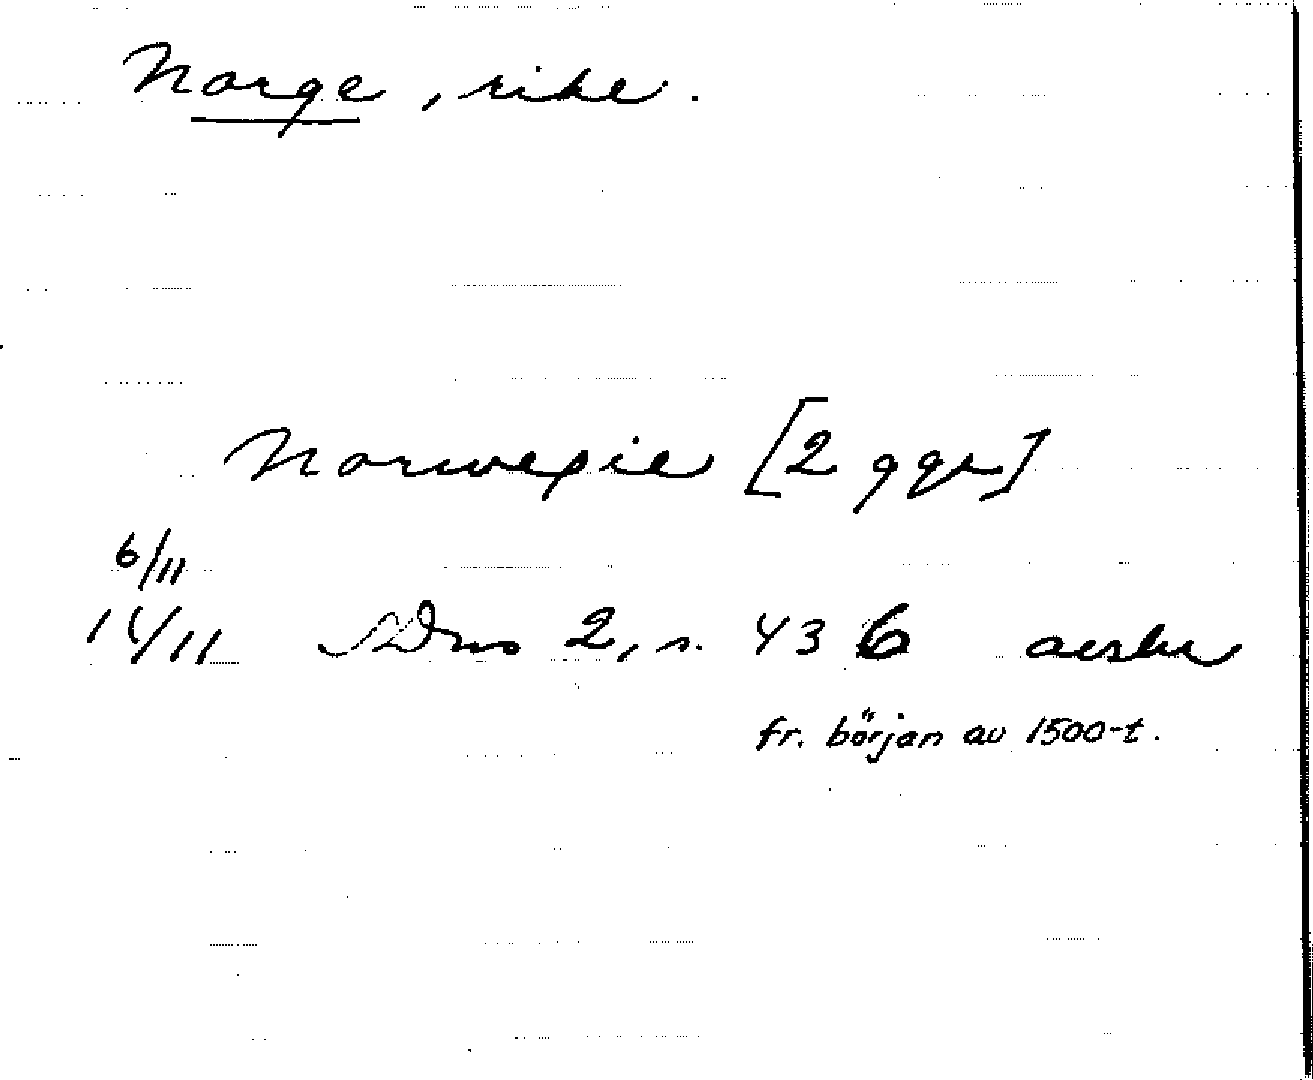 Norge, rike.
Norwegie [2 ggr]
6/11
14/11 SDns 2, s. 436 avskr
fr. början av 1500-t.